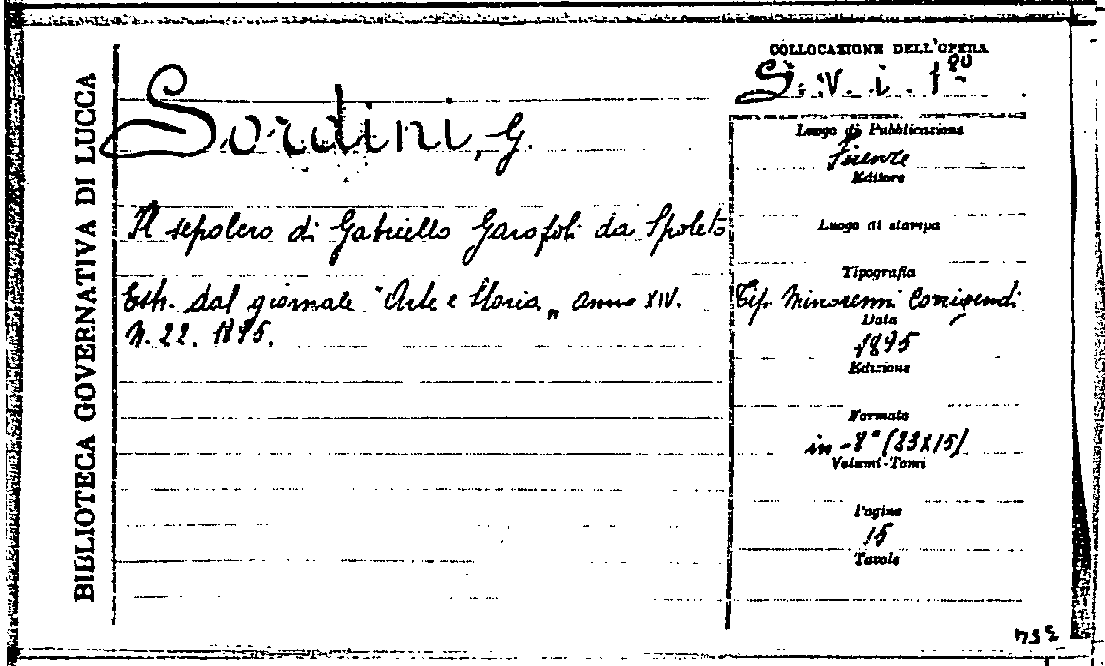 BIBLIOTECA GOVERNATIVA DI LUCCA
Sordini, G.
Il sepolcro di Gabriello Garofoli da Spoleto
Estr. dal giornale "Arte e Storia„ anno XIV.
N. 22. 1895.
COLLOCAZIONE DELL'OPERA
Luogo di Pubblicazione
Firenze
Editore
Luogo di stampa
Tipografia
Tip. Minorenni Corrigendi
Data
1895
Edizione
Formato
in-8° (23x15)
Volumi-Tomi
Pagine
15
Tavole